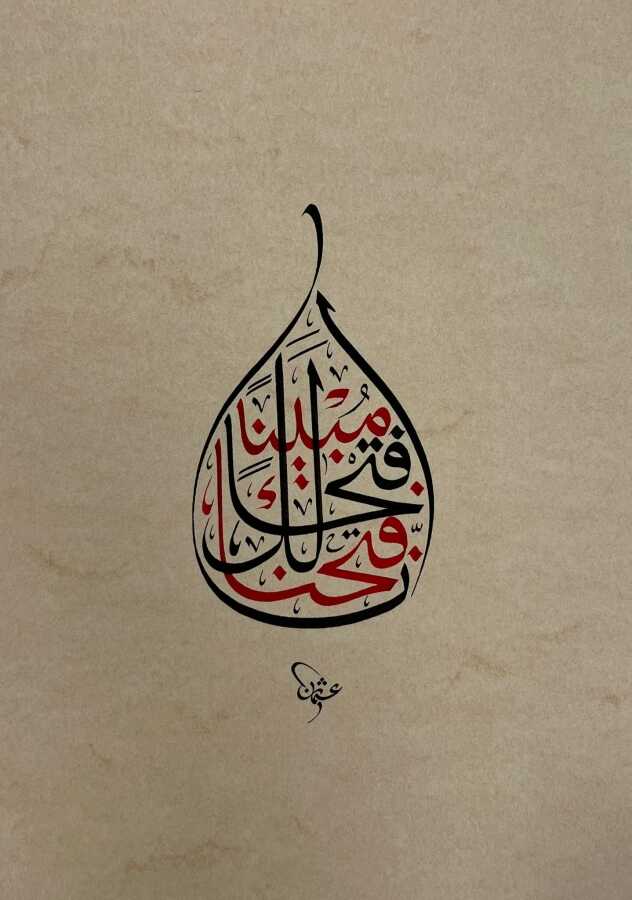 إنّا فتحنا لك فتحًا مبينًا
عثمان